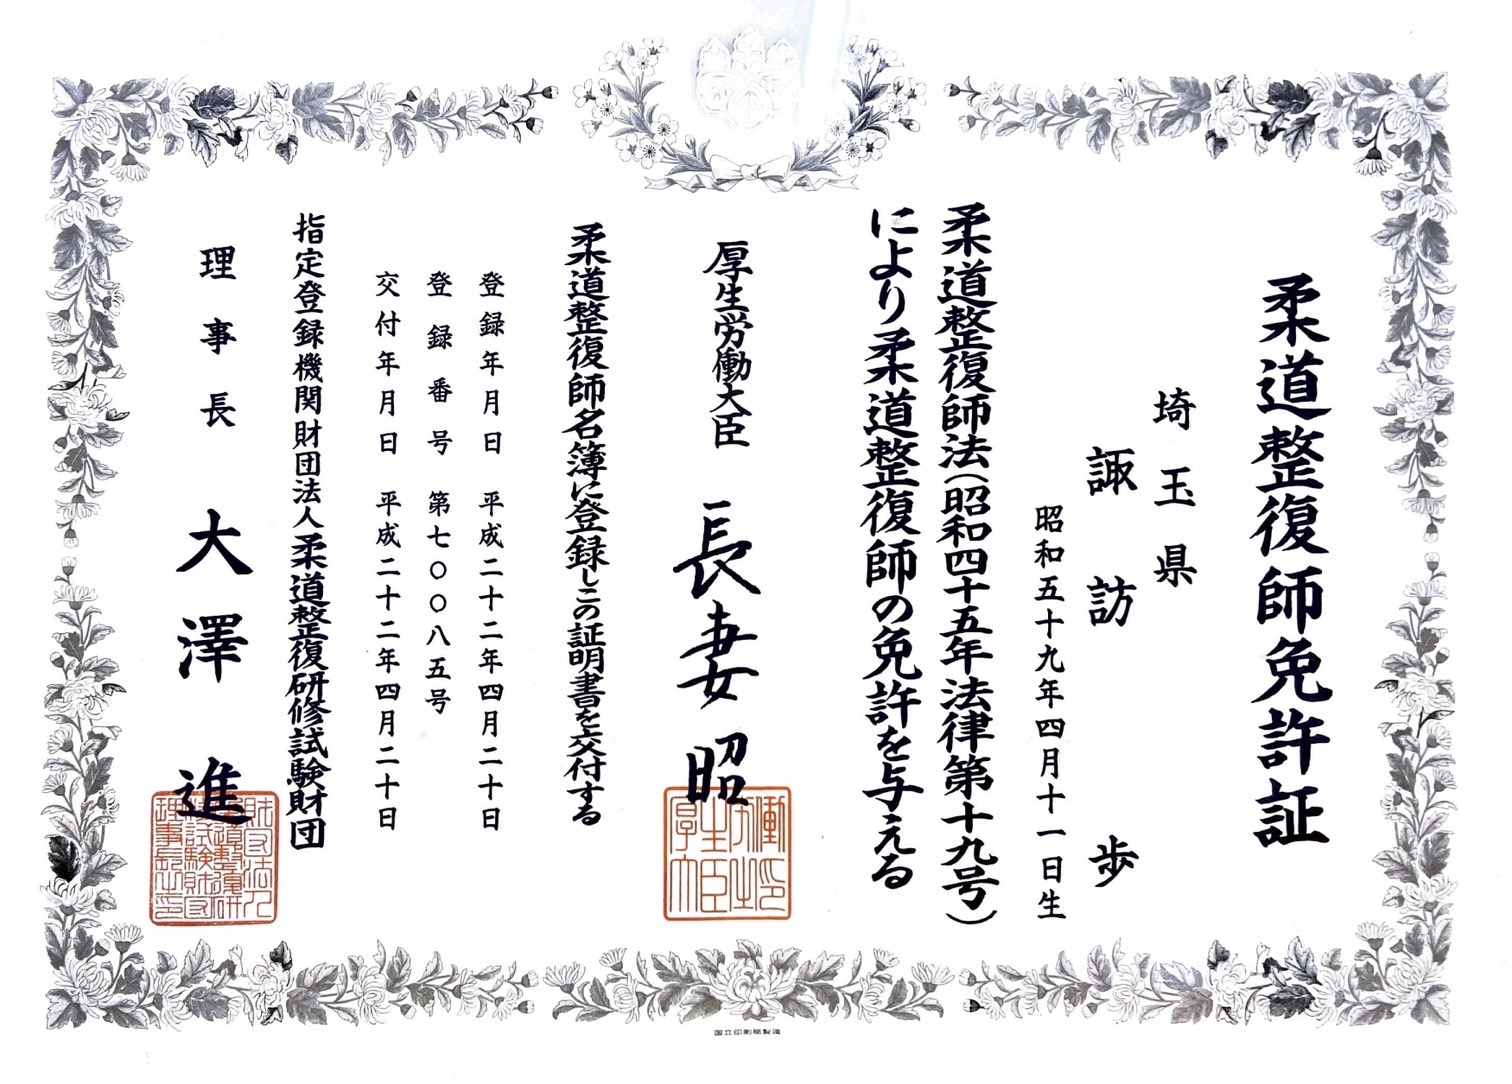 柔道整復師免許証
埼玉県
諏訪 歩
昭和五十九年四月十一日生
柔道整復師法(昭和四十五年法律第十九号)
により柔道整復師の免許を与える
厚生労働大臣 長妻昭
柔道整復師名簿に登録しこの証明書を交付する
登録年月日 平成二十二年四月二十日
登録番号 第七〇〇八五号
交付年月日 平成二十二年四月二十日
指定登録機関財団法人柔道整復研修試験財団
理事長 大澤 進
国立印刷局製造